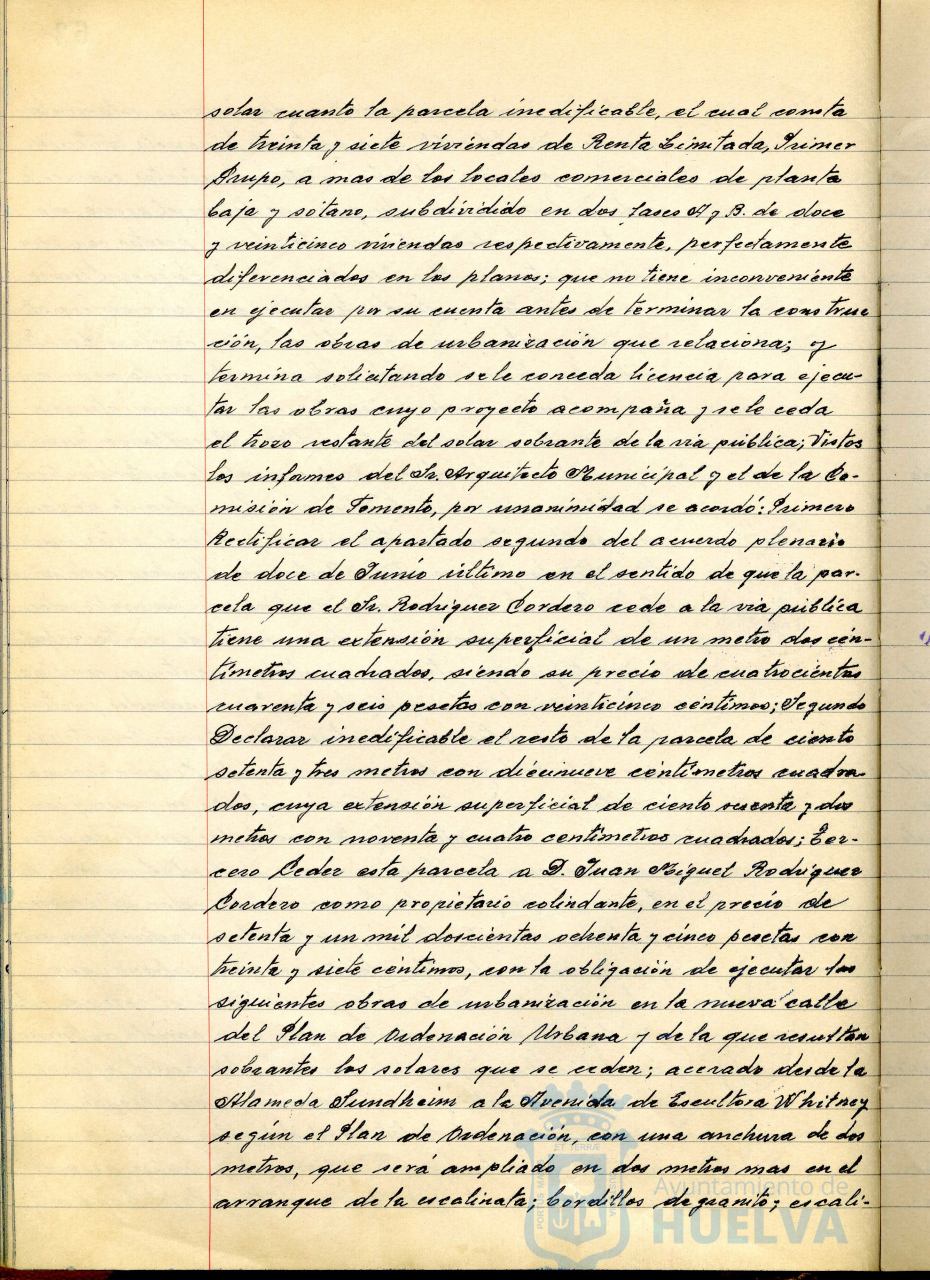 solar cuanto la parcela inedificable, el cual consta
de treinta y siete viviendas de Renta Limitada, Primer
Grupo, a mas de los locales comerciales de planta
baja y sótano, subdividido en dos fases A y B. de doce
y veinticinco viviendas respectivamente, perfectamente
diferenciados en los planos; que no tiene inconveniente
en ejecutar por su cuenta antes de terminar la construc
ción, las obras de urbanización que relaciona; y
termina solicitando se le conceda licencia para ejecu-
tar las obras cuyo proyecto acompaña y se le ceda
el trozo restante del solar sobrante de la via pública; Vistos
los informes del Sr. Arquitecto Municipal y el de la Co-
misión de Fomento, por unanimidad se acordó: Primero
Rectificar el apartado segundo del acuerdo plenario
de doce de Junio último en el sentido de que la par-
cela que el Sr. Rodriguez Cordero cede a la via pública
tiene una extensión superficial de un metro dos cén-
tímetros cuadrados, siendo su precio de cuatrocientas
cuarenta y seis pesetas con veinticinco céntimos; Segundo
Declarar inedificable el resto de la parcela de ciento
setenta y tres metros con diecinueve céntimetros cuadra-
dos, cuya extensión superficial de ciento sesenta y dos
metros con noventa y cuatro centímetros cuadrados; Ter-
cero Ceder esta parcela a D. Juan Miguel Rodriguez
Cordero como propietario colindante, en el precio de
setenta y un mil doscientas ochenta y cinco pesetas con
treinta y siete céntimos, con la obligación de ejecutar las
siguientes obras de urbanización en la nueva calle
del Plan de Ordenación Urbana y de la que resultan
sobrantes los solares que se ceden; acerado desde la
Alameda Sundheim a la Avenida de Escultora Whitney
según el Plan de Ordenación, con una anchura de dos
metros, que será ampliado en dos metros mas en el
arranque de la escalinata; bordillos de granito; escali-
Ayuntamiento de
HUELVA